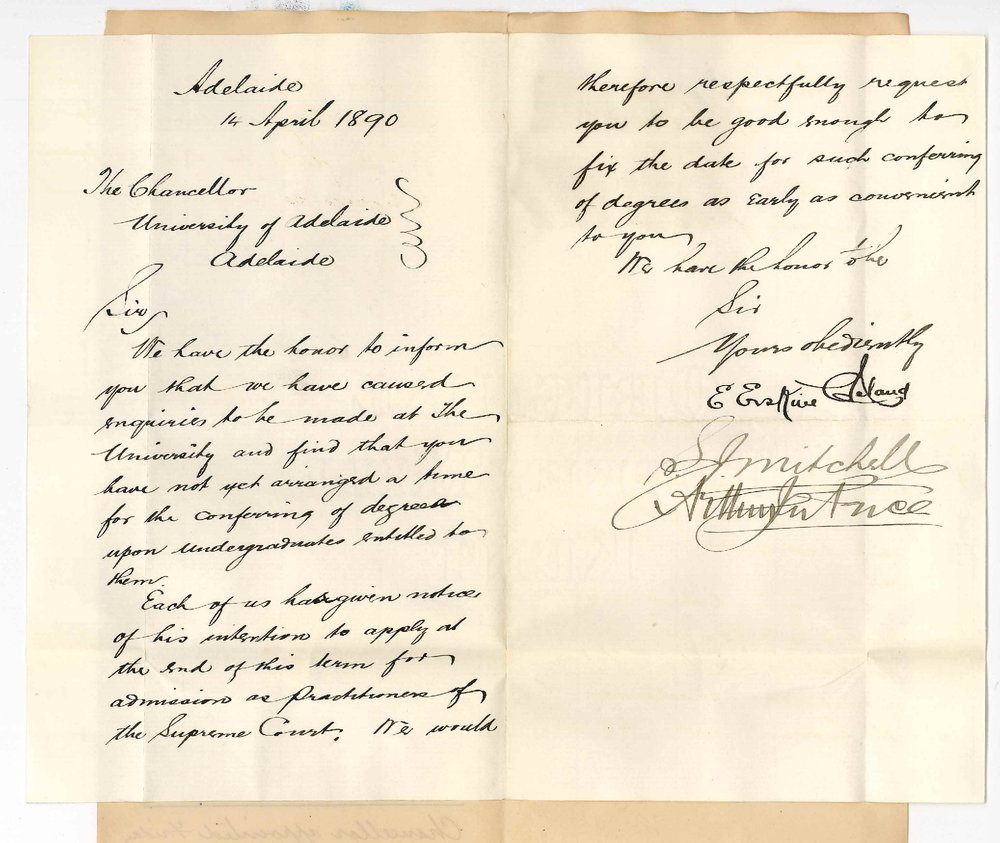 Adelaide
14 April 1890
The Chancellor
University of Adelaide
Adelaide
Sir,
We have the honor to inform
you that we have caused
enquiries to be made at The
University and find that you
have not yet arranged a time
for the conferring of degrees
upon undergraduates entitled to
them.
Each of us has given notice
of his intention to apply at
the end of this term for
admission as practitioners of
the Supreme Court. We would
therefore respectfully request
you to be good enough to
fix the date for such conferring
of degrees as early as convenient
to you
We have the honor to be
Sir
Yours obediently
E Erskine Cleland
S J Mitchell
Arthur Price
Chancellor appointed